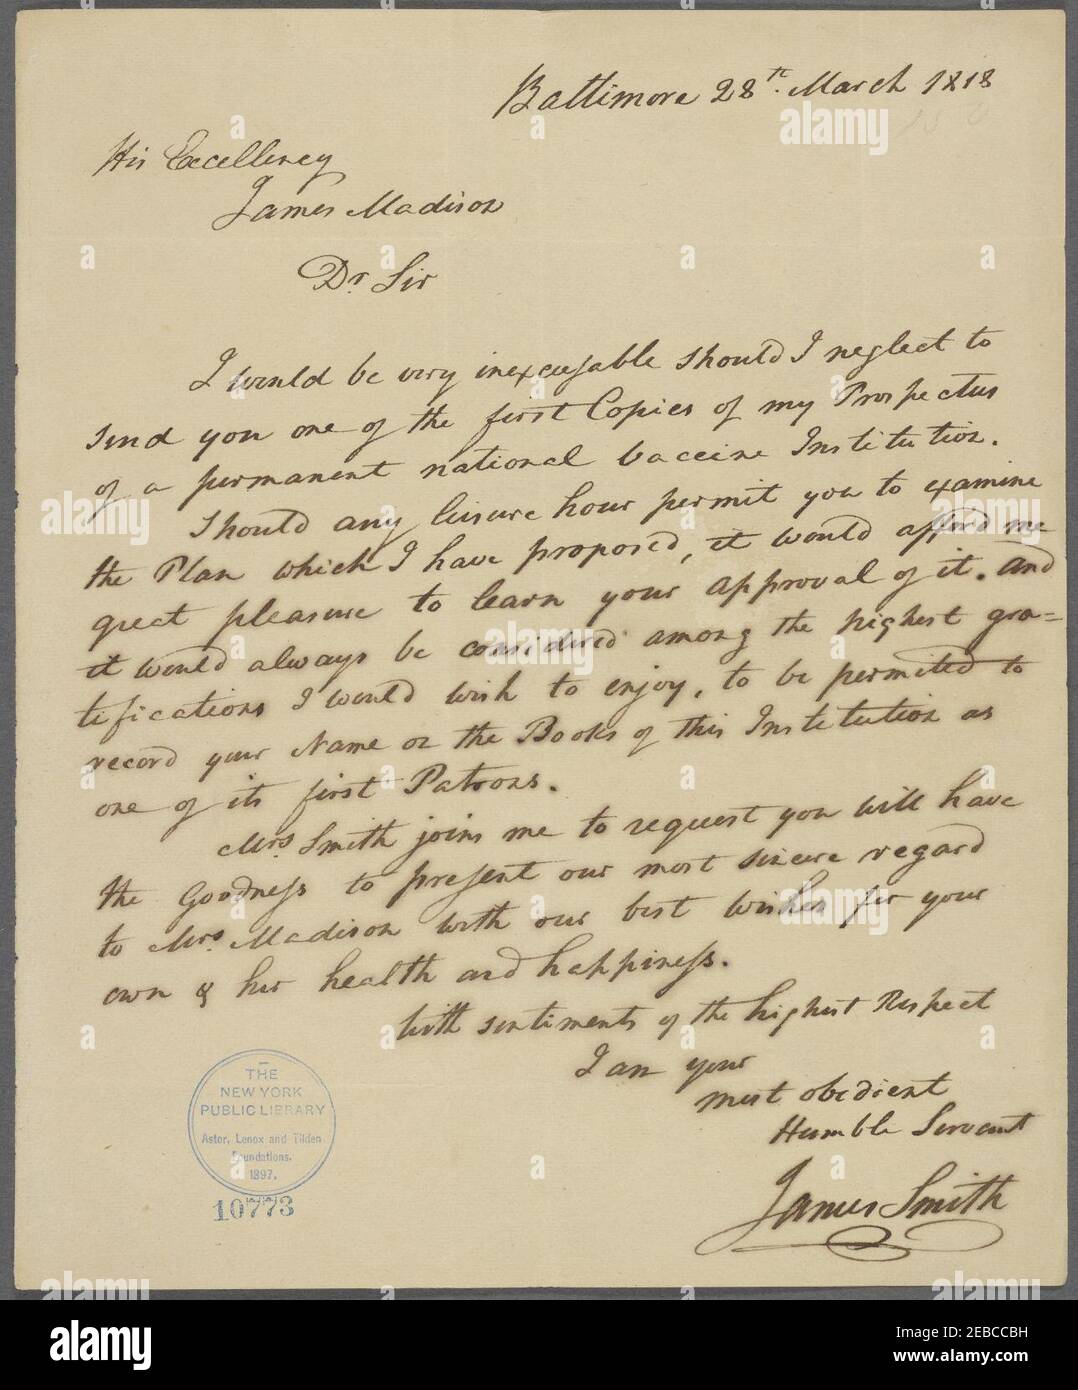 Baltimore 28th. March 1818
His Excellency
James Madison
Dr. Sir
I would be very inexcusable should I neglect to
send you one of the first Copies of my Prospectus
of a permanent national vaccine Institution.
Should any leisure hour permit you to examine
the Plan which I have proposed, it would afford me
great pleasure to learn your approval of it. and
it would always be considered among the highest gra=
tifications I would wish to enjoy, to be permited to
record your Name on the Books of this Institution as
one of its first Patrons.
Mrs. Smith joins me to request you will have
the Goodness to present our most sincere regard
to Mrs. Madison with our best wishes for your
own & her health and happiness.
With sentiments of the highest Respect
I am your
most obedient
Humble Servant
James Smith
THE
NEW YORK
PUBLIC LIBRARY
Astor, Lenox and Tilden
Foundations.
1897.
10773
alamy
Image ID: 2EBCCBH
www.alamy.com